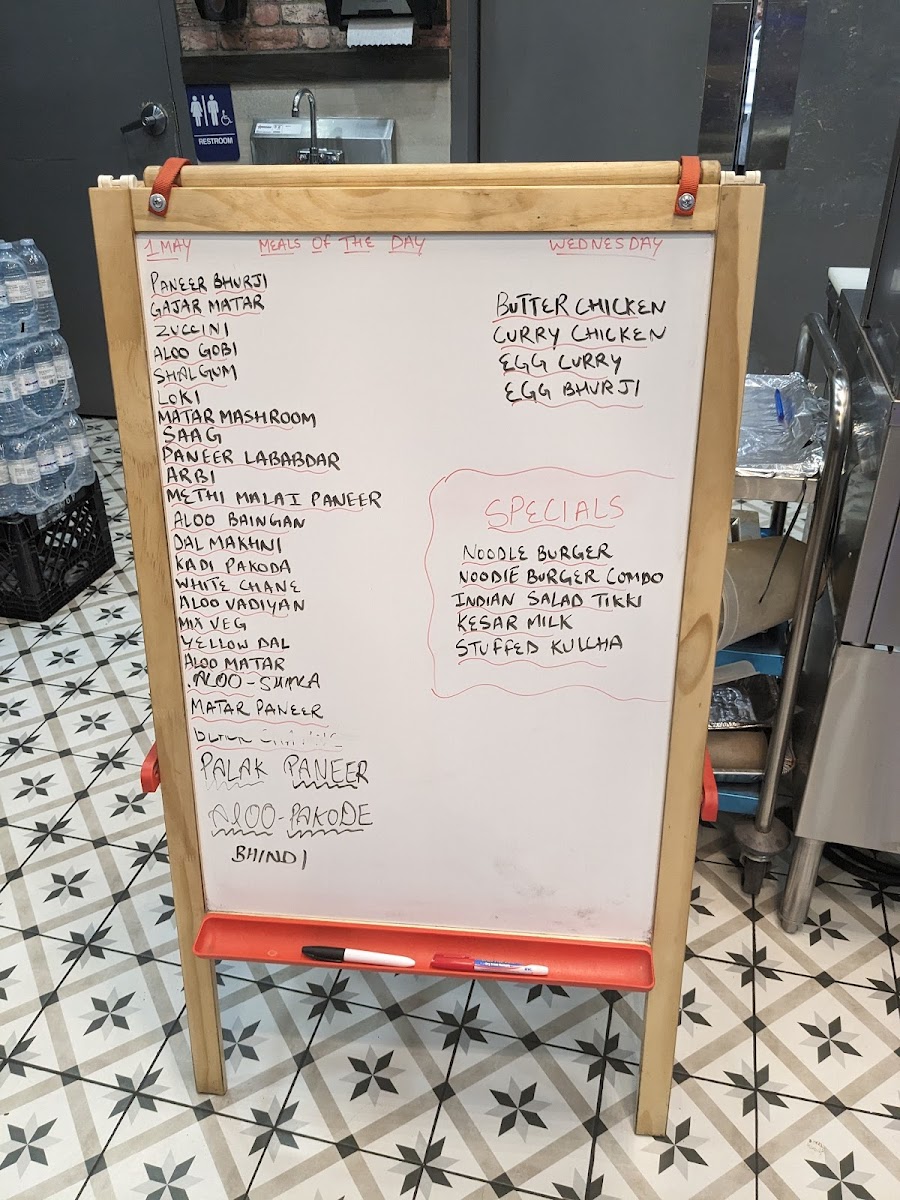 RESTROOM
1 MAY MEALS OF THE DAY WEDNESDAY
PANEER BHURJI
GAJAR MATAR
ZUCCINI
ALOO GOBI
SHALGUM
LOKI
MATAR MASHROOM
SAAG
PANEER LABABDAR
ARBI
METHI MALAI PANEER
ALOO BAINGAN
DAL MAKHNI
KADI PAKODA
WHITE CHANE
ALOO VADIYAN
MIX VEG
YELLOW DAL
ALOO MATAR
ALOO-SHIMLA
MATAR PANEER
PALAK PANEER
ALOO-PAKODE
BHINDI
BUTTER CHICKEN
CURRY CHICKEN
EGG CURRY
EGG BHURJI
SPECIALS
NOODLE BURGER
NOODLE BURGER COMBO
INDIAN SALAD TIKKI
KESAR MILK
STUFFED KULCHA